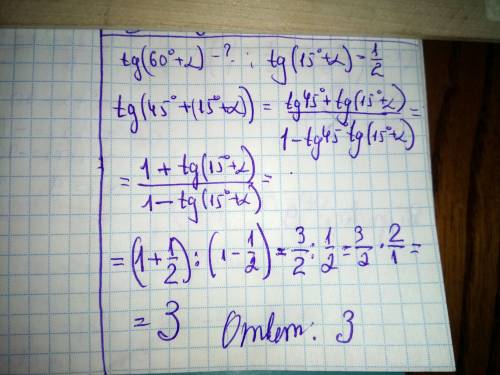 tg(60°+α) - ? ; tg(15°+α) = 1/2
tg(45°+(15°+α)) = (tg45°+tg(15°+α))/(1-tg45°tg(15°+α)) =
= (1+tg(15°+α))/(1-tg(15°+α)) =
= (1+1/2):(1-1/2) = 3/2 : 1/2 = 3/2 · 2/1 =
= 3 Ответ: 3